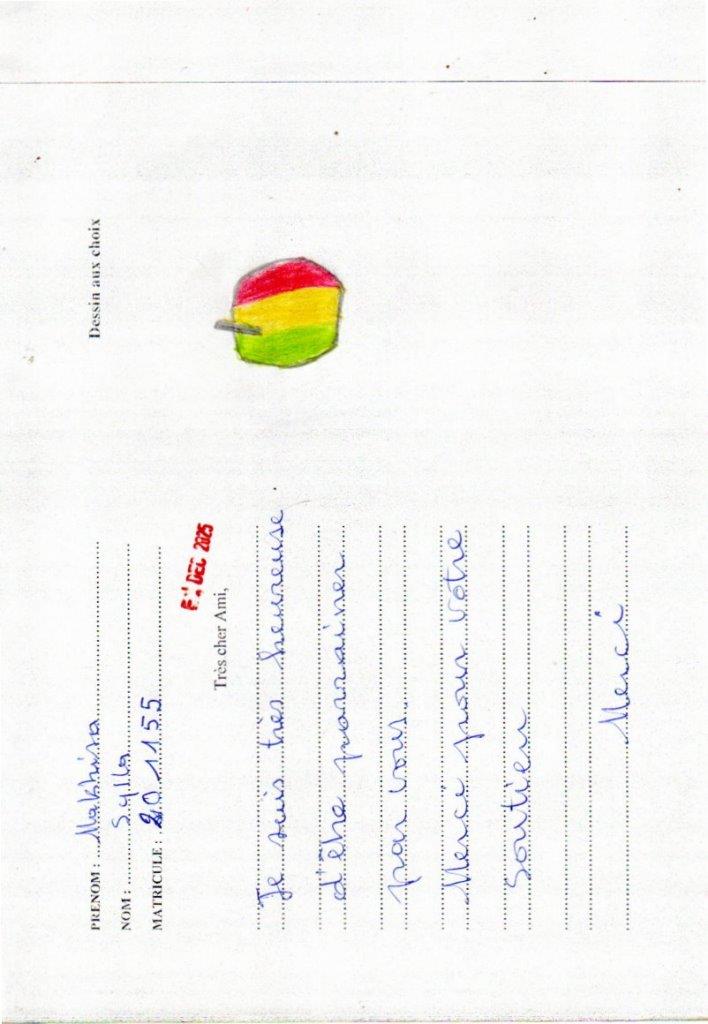 PRENOM : Makhisa
NOM : Sylla
MATRICULE : 20 1155
DEC 2025
Très cher Ami,
Je suis très heureuse
d'être parrainer
par vous.
Merci pour votre
Soutien
Merci
Dessin aux choix